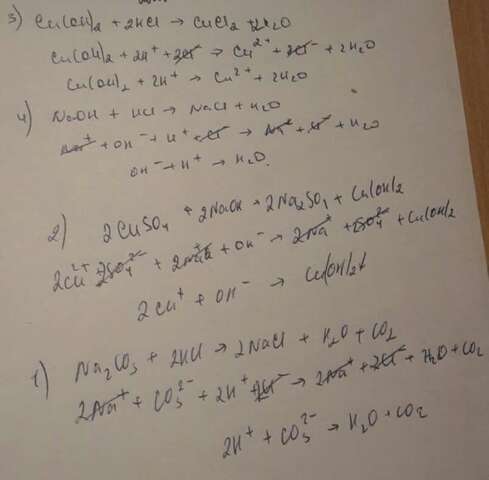 3) Cu(OH)2 + 2HCl → CuCl2 + H2O
Cu(OH)2 + 2H+ + 2Cl- → Cu2+ + 2Cl- + 2H2O
Cu(OH)2 + 2H+ → Cu2+ + 2H2O
4) NaOH + HCl → NaCl + H2O
Na+ + OH- + H+ + Cl- → Na+ + Cl- + H2O
OH- + H+ → H2O.
2) 2CuSO4 + 2NaOH → 2Na2SO4 + Cu(OH)2
2Cu2+ 2SO4 2- + 2Na+ + OH- → 2Na+ + SO4 2- + Cu(OH)2
2Cu+ + OH- → Cu(OH)2↓
1) Na2CO3 + 2HCl → 2NaCl + H2O + CO2
2Na+ + CO3 2- + 2H+ + 2Cl- → 2Na+ + 2Cl- + H2O + CO2
2H+ + CO3 2- → H2O + CO2